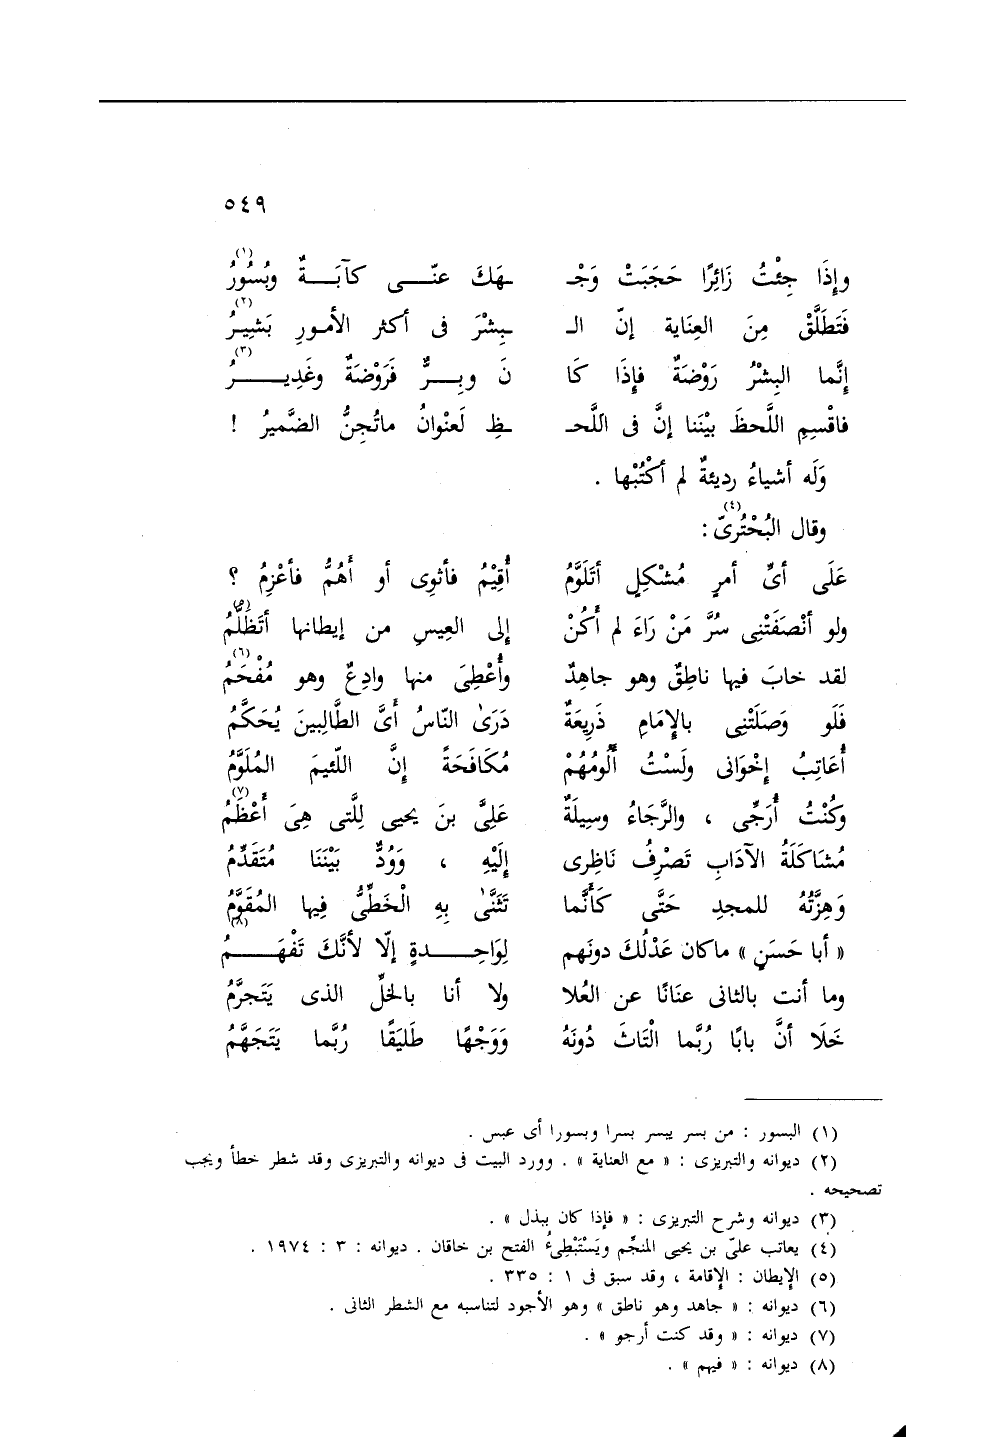 ٥٤٩
وإِذَا جِئْتُ زَائِرًا حَجَبَتْ وَجْـ ـهَكَ عنّـــى كآبَـــةٌ وبُسُورُ (١)
فَتَطَلَّقْ مِنَ العِنَاية إنّ الـ ـبِشْرَ فى أكثر الأمورِ بَشيـرُ (٢)
إِنَّما البِشْرُ رَوْضَةٌ فإِذَا كَا نَ وبِـــرٌّ فَرَوْضَةٌ وغَدِيـــــرُ (٣)
فاقْسِمِ اللَّحظَ بيْنَنا إنَّ فى اللَّحـ ـظِ لَعنْوانُ ماتُجِنُّ الضَّميرُ !
وَلَه أشياءُ رديئةٌ لم أكْتُبْها .
وقال البُحْتُرىّ (٤) :
عَلَى أىِّ أمرٍ مُشْكِلٍ أتَلَوَّمُ أُقِيْمُ فأثوِى أو أَهُمُّ فأعْزِمُ ؟
ولو أنْصَفَتْنِى سُرَّ مَنْ رَاءَ لم أَكُنْ إلى العِيسِ من إيطانها أتَظَلَّمُ (٥)
لقد خابَ فيها ناطِقٌ وهو جاهِدٌ وأُعْطِىَ منها وادِعٌ وهو مُفْحَمُ (٦)
فَلَو وَصَلَتْنِى بالإمَامِ ذَرِيعَةٌ دَرَىٰ النّاسُ أَىَّ الطَّالِبينَ يُحَكَّمُ
أُعَاتِبُ إخْوَانى ولَسْتُ أَلُومُهُمْ مُكَافَحَةً إنَّ اللّئيمَ المُلَوَّمُ
وكُنْتُ أُرَجِّى ، والرَّجَاءُ وسِيلَةٌ عَلِىَّ بنَ يحيى لِلَّتى هِىَ أَعْظَمُ (٧)
مُشَاكَلَةُ الآدَابِ تَصْرِفُ نَاظِرى إِلَيْهِ ، وَوُدٌّ بَيْنَنَا مُتَقَدِّمُ
وَهِزَّتُهُ للمجدِ حَتَّى كَأَنَّما تَثَنَّىٰ بِهِ الْخَطِّىُّ فِيها المُقَوَّمُ
« أبا حَسَنٍ » ماكان عَدْلُكَ دونَهم لِوَاحِــــدةٍ إلّا لأنَّكَ تَفْهَــــمُ (٨)
وما أنت بالثانى عنَانًا عن العُلا ولا أنا بالخلِّ الذى يَتَجرَّمُ
خَلَا أنَّ بابًا رُبَّما الْتَاثَ دُونَهُ وَوَجْهًا طَلَيقًا رُبَّما يَتَجَهَّمُ
(١) البسور : من بسر يبسر بسرا وبسورا أى عبس .
(٢) ديوانه والتبريزى : « مع العناية » . وورد البيت فى ديوانه والتبريزى وقد شطر خطأ ويجب
تصحيحه .
(٣) ديوانه وشرح التبريزى : « فإذا كان ببذل » .
(٤) يعاتب علىّ بن يحيى المنجِّم ويَسْتَبْطِىءُ الفتح بن خاقان . ديوانه : ٣ : ١٩٧٤ .
(٥) الإيطان : الإقامة ، وقد سبق فى ١ : ٣٣٥ .
(٦) ديوانه : « جاهد وهو ناطق » وهو الأجود لتناسبه مع الشطر الثانى .
(٧) ديوانه : « وقد كنت أرجو » .
(٨) ديوانه : « فيهم » .